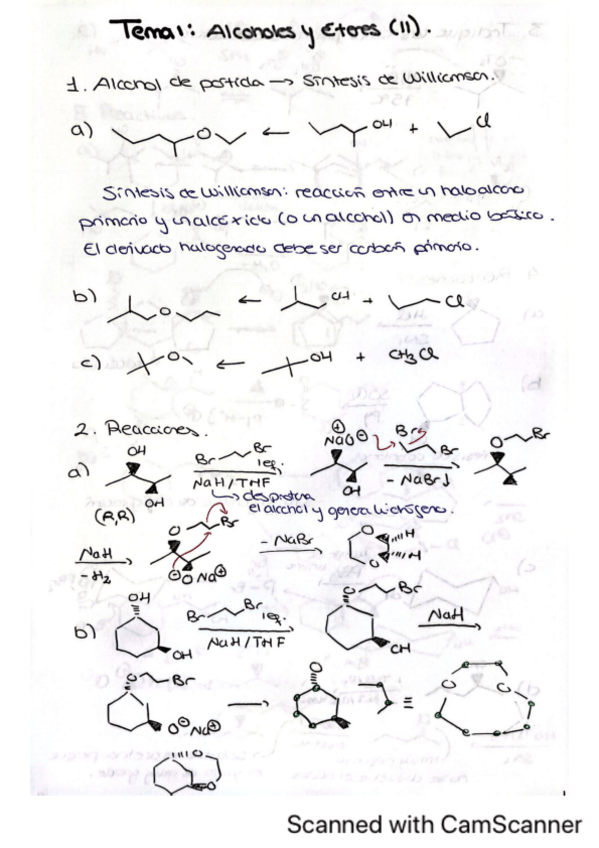 Tema 1: Alcoholes y Éteres (II).
1. Alcohol de partida → Síntesis de Williamson.
a) O ← OH + Cl
Síntesis de Williamson: reacción entre un haloalcano
primario y un alcóxido (o un alcohol) en medio básico.
El derivado halogenado debe ser carbón primario.
b) O ← OH + Cl
c) O ← OH + CH3Cl
2. Reacciones.
a) OH OH Br Br 1eq. NaH/THF ⊕ NaO⊖ OH Br Br - NaBr↓ O Br
↳ desprotona
el alcohol y genera hidrógeno.
(R,R)
NaH - H2 O Br ⊖O Na⊕ - NaBr O O H H
b) OH OH Br Br 1eq. NaH/THF O Br OH NaH
O Br O⊖ Na⊕ → O ≡ O O
O O
Scanned with CamScanner